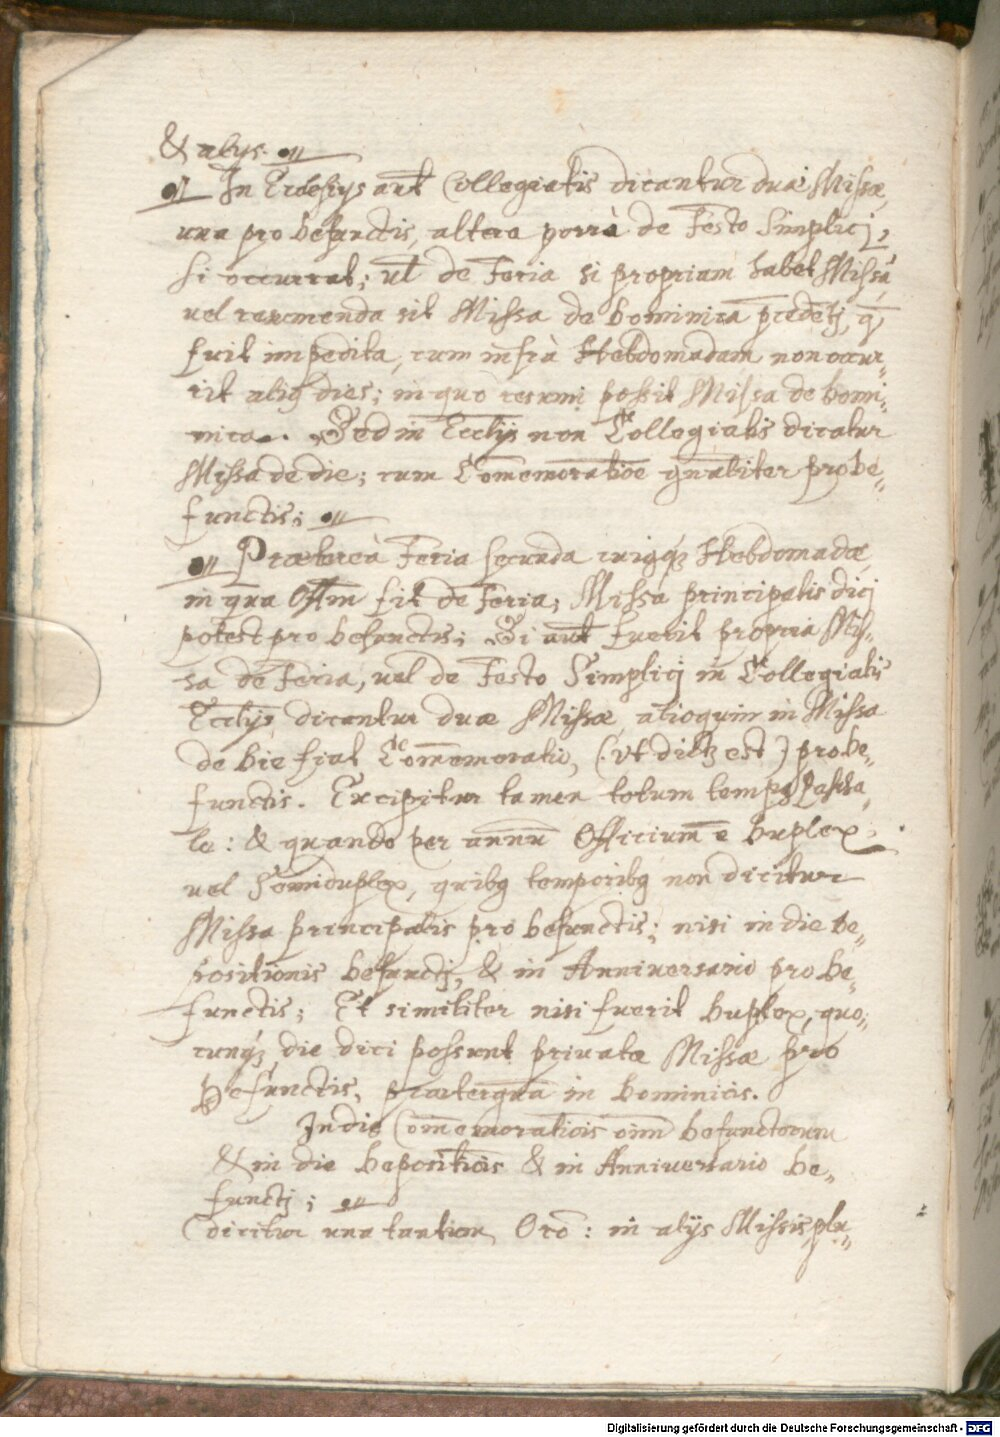 & alijs.
In Ecclesijs aut̄ Collegiatis dicantur duae Missae,
una pro defunctis, altera porrà de Festo Simplicj,
si occurrat; ul̄ de Feria si propriam habet Missā,
uel resumenda sit Missa de Dominica p̄cedētj, q̄
fuit impedita, cum infrà Hebdomadam non occur„
rit aliq̄ dies; in quo resumi possit Missa de Domi„
nica. Sed in Eccl̄ijs non Collegiatis dicatur
Missa de die; cum Com̄emoratiōe gn̄aliter pro De„
functis;
Praetereà Feria secunda cuiqq; Hebdomadae,
in qua Offm̄ fit de Feria; Missa principalis dicj
potest pro Defunctis; Si aut̄ fuerit propria Mis„
sa de Feria, uel de Festo Simplicj in Collegiatis
Eccl̄ijs, dicantur duae Missae, alioquin in Missa
de Die fiat Com̄emoratio, (ut dictz est) pro De„
functis. Excipitur tamen totum tempq Pascha„
le: & quando per annū Officium ē Duplex,
uel Semiduplex, quibq temporibq non dicitur
Missa principalis pro Defunctis; nisi in die De„
positionis Defunctj, & in Anniuersario pro De„
functis; Et similiter nisi fuerit Duplex, quo„
cunq; die dici possunt priuatae Missae pro
Defunctis, praeterquā in Dominicis.
In die Com̄emorationis oīm̄ Defunctorum
& in die Depositiōis & in Anniuersario De„
functj;
dicitur una tantum Orō: in alijs Missis, plu„
Digitalisierung gefördert durch die Deutsche Forschungsgemeinschaft - DFG